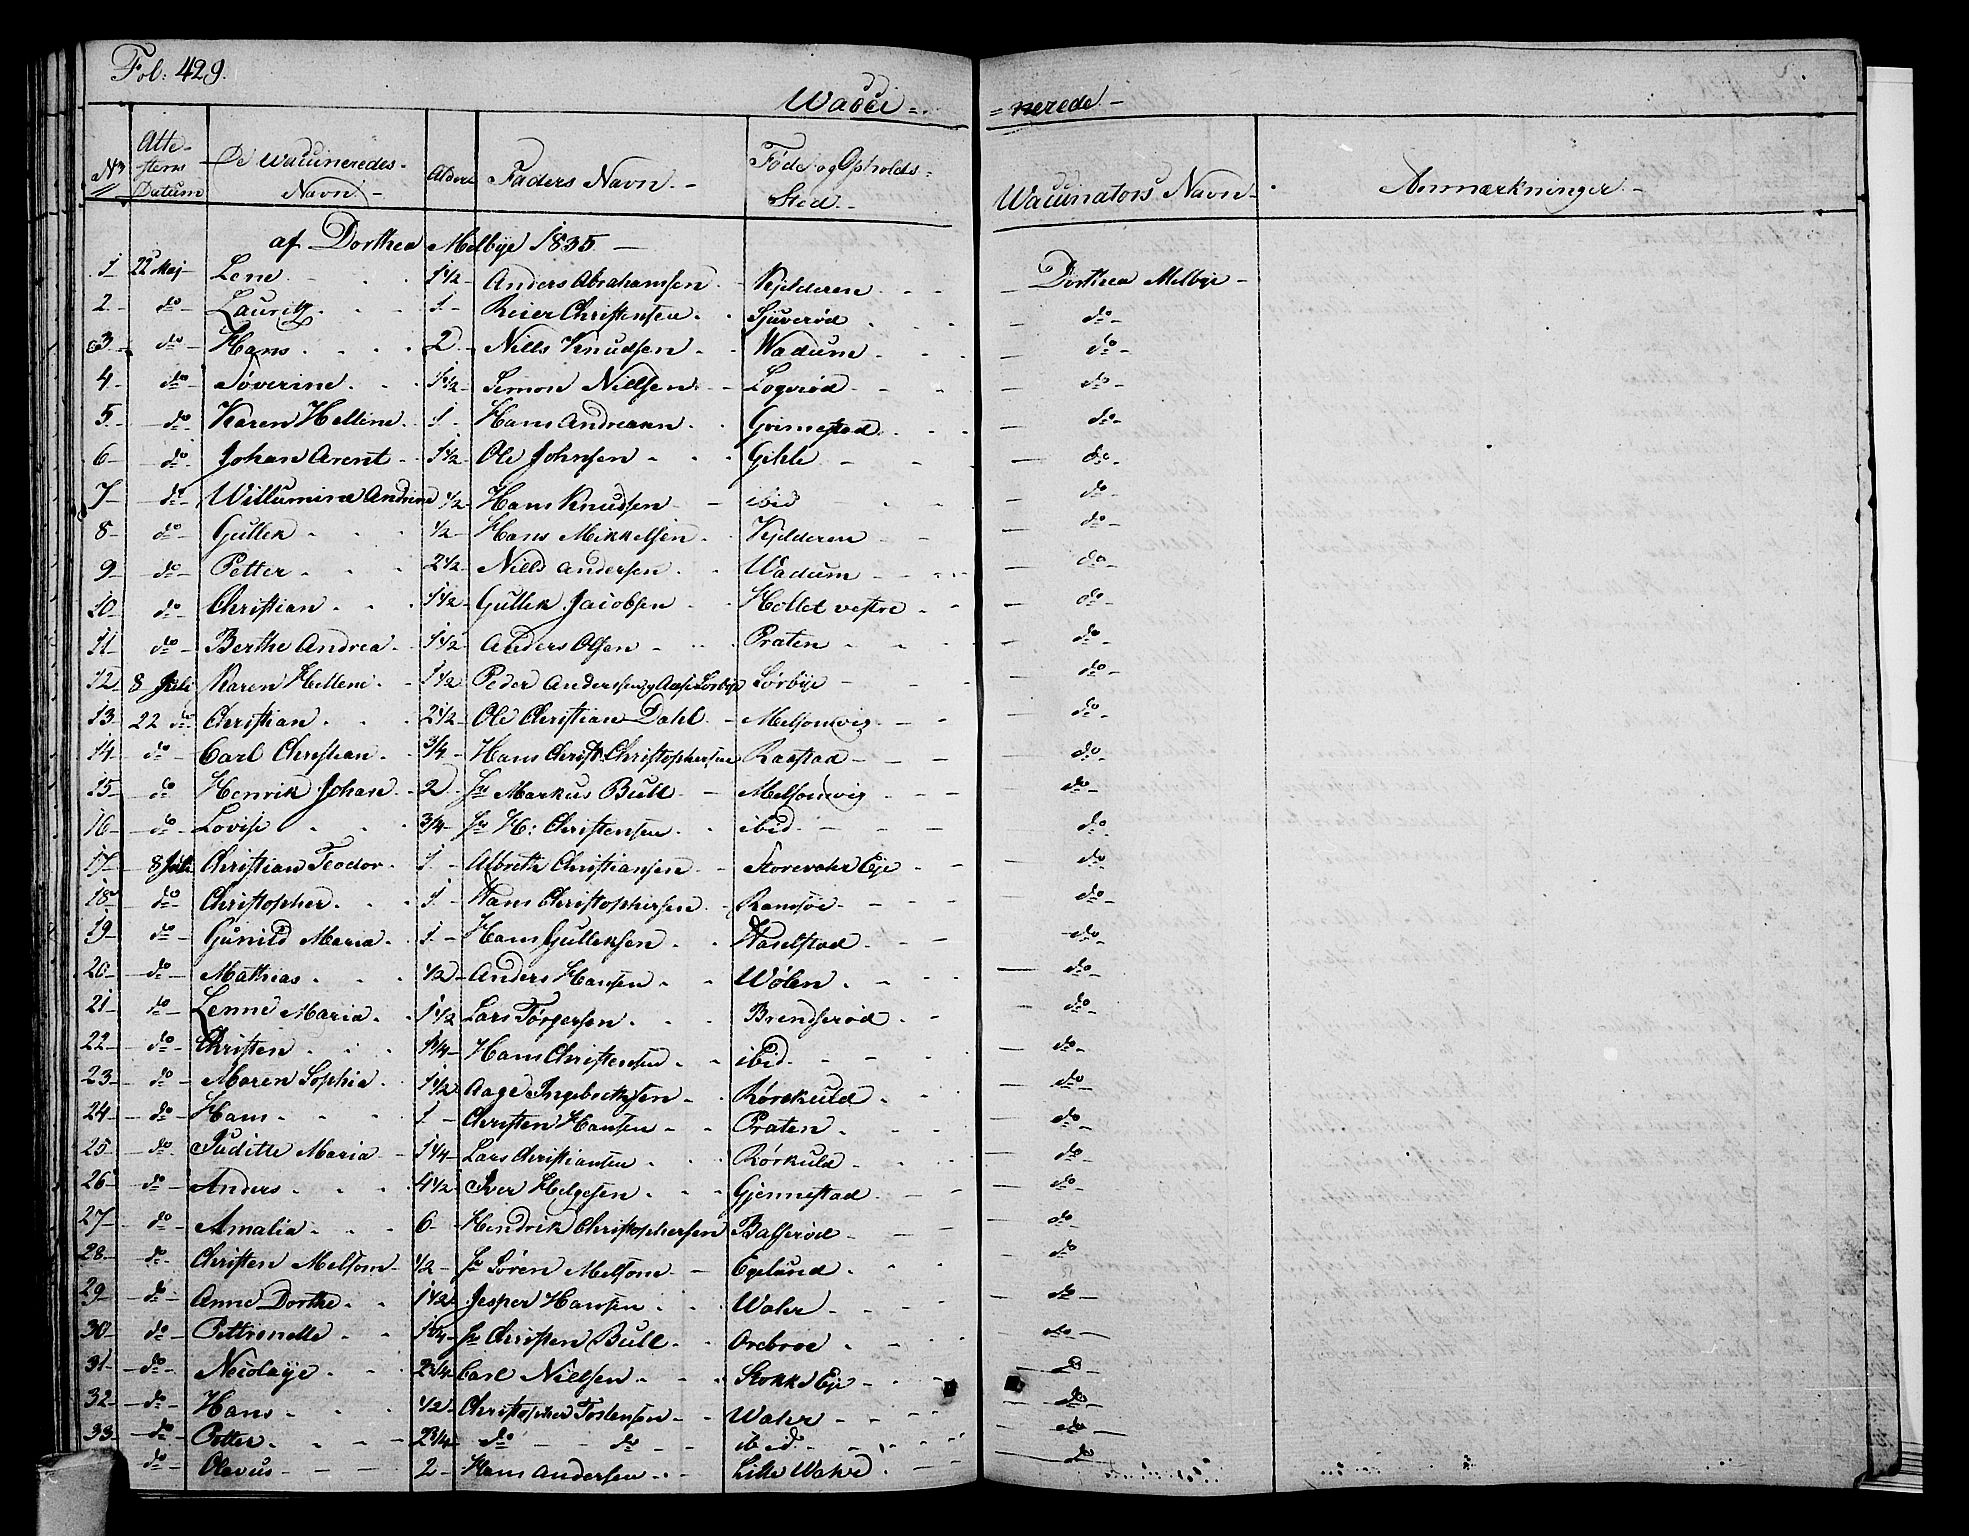 Fol: 429.
Wacci=nerede.
No Attestens Datum De Waccineredes Navn. Aldere Faders Navn. Føde og Opholds Sted. Waccinators Navn. Anmærkninger.
af Dorthea Melbye 1835
1 22 Maj Lene 1 1/2 Anders Abrahamsen Kjelderen Dorthea Melbye
2 do Lauritz 1 Reier Christensen Sjuverød do
3 do Hans 2 Niels Knudsen Wadum do
4 do Søverine 1 1/2 Simon Nielsen Logerød do
5 do Karen Hellene 1 Hans Andreasen Grimestad do
6 do Johan Arent 1 1/2 Ole Johnsen Gihle do
7 do Willumine Andrine 1/2 Hans Knudsen ibid do
8 do Gullek 1/2 Hans Mikkelsen Kjelderen do
9 do Petter 2 1/2 Niels Andersen Wadum do
10 do Christian 1 1/2 Gullek Jacobsen Hollet vestre do
11 do Berthe Andrea 1 1/2 Anders Olsen Præten do
12 8 Juli Karen Hellene 1 1/2 Peder Anderssen og Aase Sørbye Sørbye do
13 22 do Christian 2 1/2 Ole Christian Dahl Melsomvig do
14 do Carl Christian 3/4 Hans Christ. Christophersen Rastad do
15 do Henrik Johan 2 Sr Markus Bull Melsomvig do
16 do Lovise 3/4 Sr H: Christensen ibid do
17 8 Juli Christian Teodor 1 Albreth Christiansen Storevahr Eje do
18 do Christopher 1 Hans Christophersen Ramsøe do
19 do Gunild Maria 1 Hans Gulleksen Haselstad do
20 do Mathias 1/2 Anders Hansen Wølen do
21 do Lenne Maria 1 1/2 Lars Torgersen Brendserød do
22 do Christen 1 3/4 Hans Christensen ibid do
23 do Maren Sophia 1 1/2 Aage Ingebrethsen Rørekuld do
24 do Hans 1 Christen Hansen Præten do
25 do Juditte Maria 1 1/4 Lars Christiansen Rørkuld do
26 do Anders 4 1/2 Iver Helgesen Gjennestad do
27 do Amalia 6 Hendrik Christophersen Balserød do
28 do Christen Melsom 1/2 Sr Søren Melsom Egelund do
29 do Anne Dorthe 1 1/2 Jesper Hansen Wahr do
30 do Pettronelle 1 3/4 Sr Christen Bull Orebroe do
31 do Necolaye 2 3/4 Carl Nielsen Stokke Eje do
32 do Hans 1/2 Christopher Tostensen Wahr do
33 do Petter 2 3/4 do do ibid do
do Olevus 2 Hans Andersen Lille Wahr do